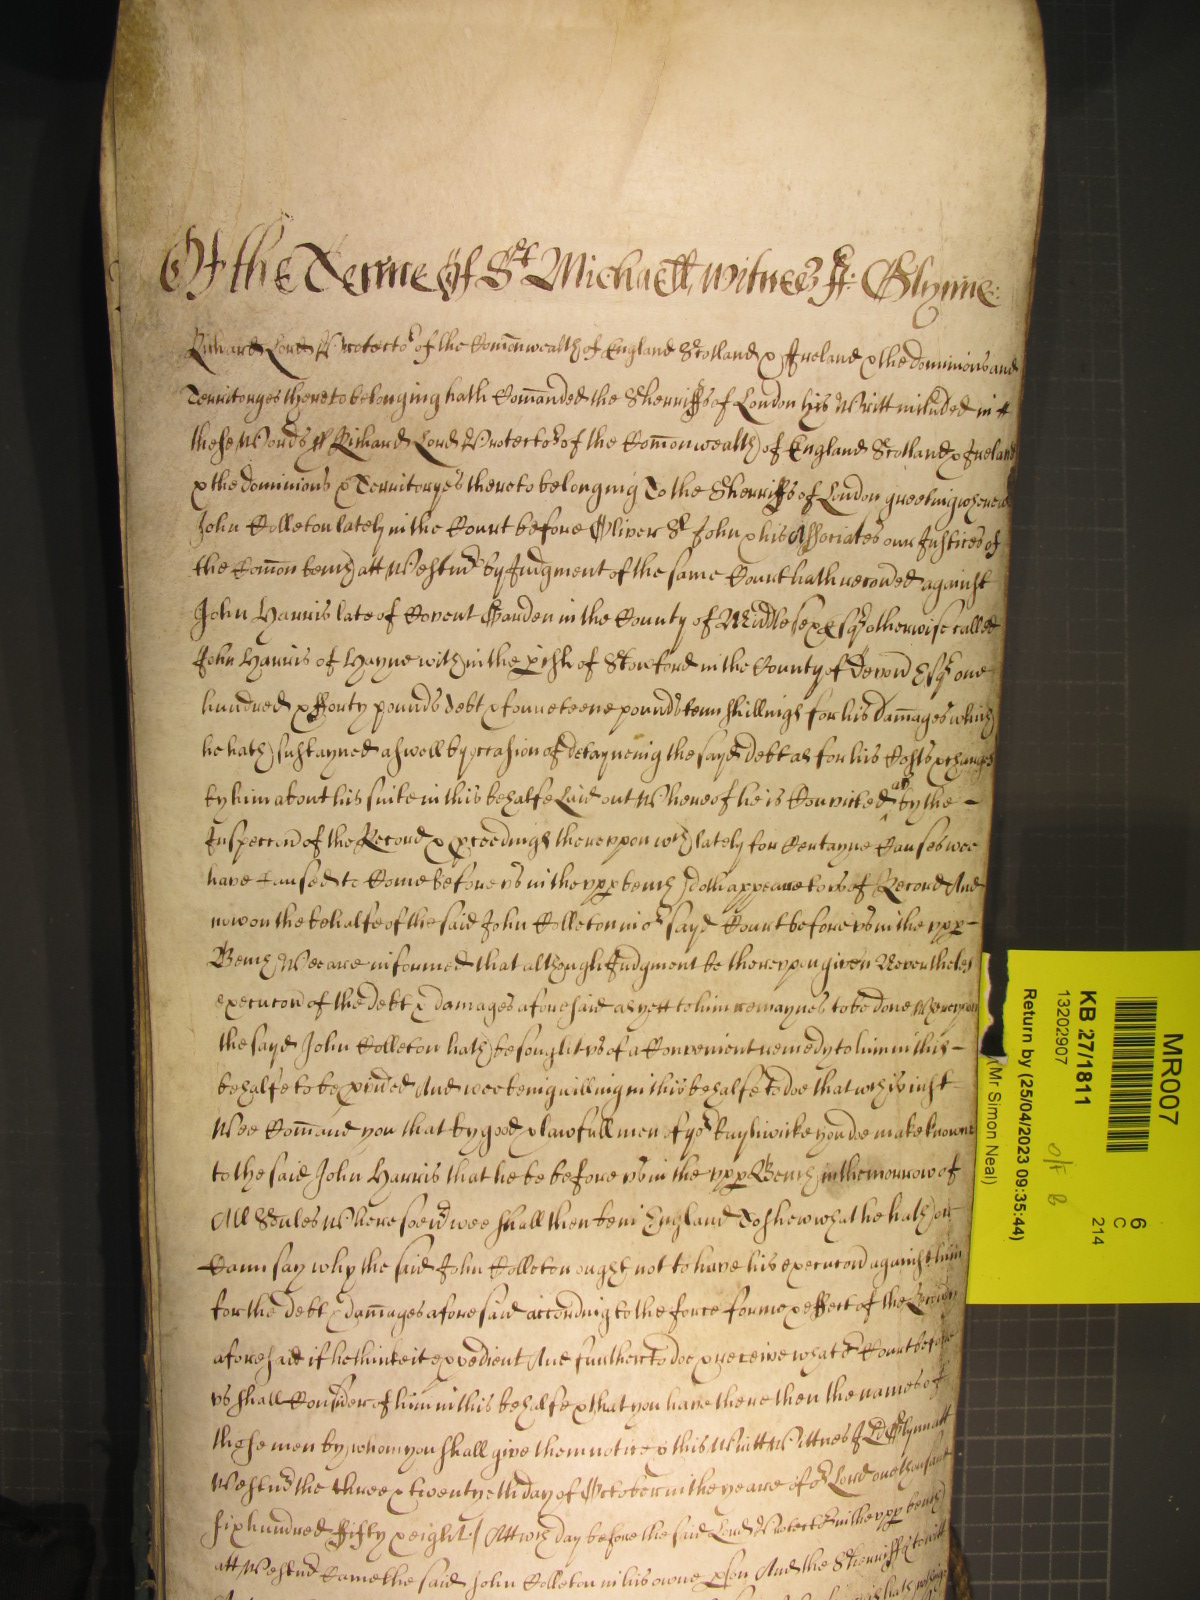 Of the Terme of St Michaell, witnes J: Glynne:
Richard Lord Protector of the Comonwealth of England Scotland & Ireland & the dominions and
Territoryes thereto belonging hath Comanded the Sherriffs of London his Writt included in
these Words ss Richard Lord Protector of the Comonwealth of England Scotland & Ireland
& the dominions & Territoryes thereto belonging To the Sherriffs of London greeting whereas
John Colleton lately in the Court before Oliver St John & his Associates our Justices of
the Comon bench att Westmr by Judgment of the same Court hath recovered against
John Harris late of Covent Garden in the County of Middlesex Esqr otherwise called
John Harris of Hayne within the pish of Stowford in the County of Devon Esqr one
hundred & fforty pounds debt & fourteene pounds tenn shillings for his damages which
he hath sustayned aswell by occasion of detayneing the sayd debt as for his Costs & charges
by him about his suite in this behalfe Laid out Whereof he is Convicted as by the -
Inspeccon of the Record & pceedings thereuppon wch lately for Certayne Causes wee
have Caused to Come before us in the upp bench doth appeare to us of Record And
now on the behalfe of the said John Colleton in or sayd Court before us in the upp -
Bench Wee are informed that although Judgment be thereuppon given Nevertheles
execucon of the debt & damages aforesaid as yett to him remaynes to be done Whereuppon
the sayd John Colleton hath besought us of a Convenient remedy to him in this -
behalfe to be pvided And wee being willing in this behalfe to doe that wch is iust
Wee Comand you that by good & lawfull men of yor Bayliwicke you doe make knowne
to the said John Harris that he be before us in the upp Bench in the morrow of
All Soules Wheresoevr wee shall then be in England To shew what he hath or
Cann say why the said John Colleton ought not to have his execucon against him
for the debt & damages aforesaid according to the force forme & effect of the Recovery
aforesaid if he thinke it expedient And further to doe & receive what or Court before
us shall Consider of him in this behalfe & that you have there then the names of
those men by whom you shall give them notice & this Writt Wittnes J Glynn att
Westmr the three & twentyeth day of October in the yeare of or Lord one thousand
six hundred ffifty & eight / Att wch day before the said Lord Protector in the upp bench
att Westmr Came the said John Colleton in his owne pson And the Sherriffs to witt
MR007
6
C
214
KB 27/1811
13202907
O/F B
Return by (25/04/2023 09:35:44)
(Mr Simon Neal)